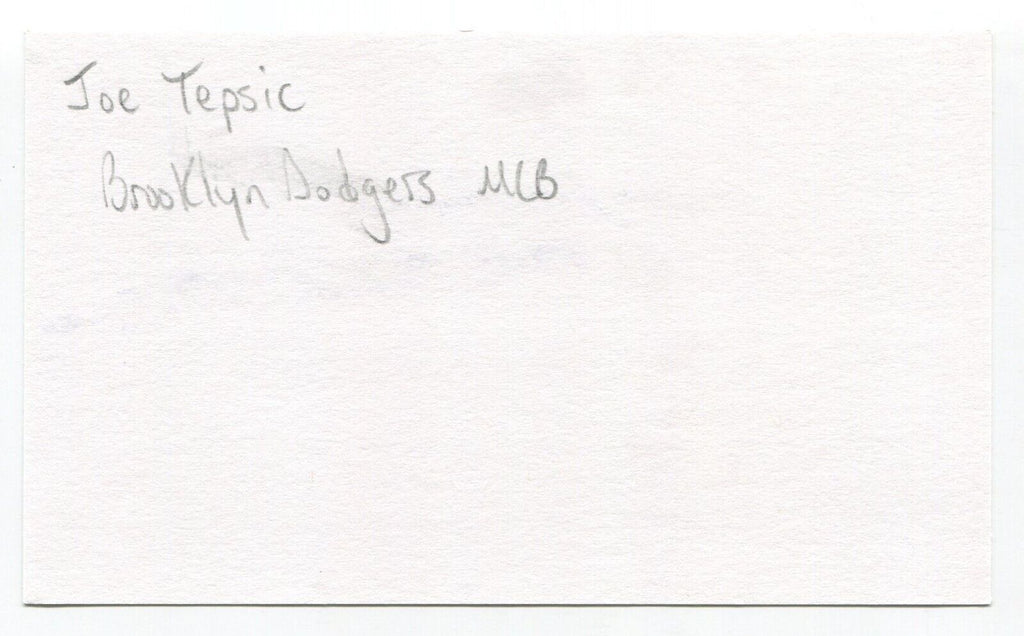 Joe Tepsic
Brooklyn Dodgers MLB